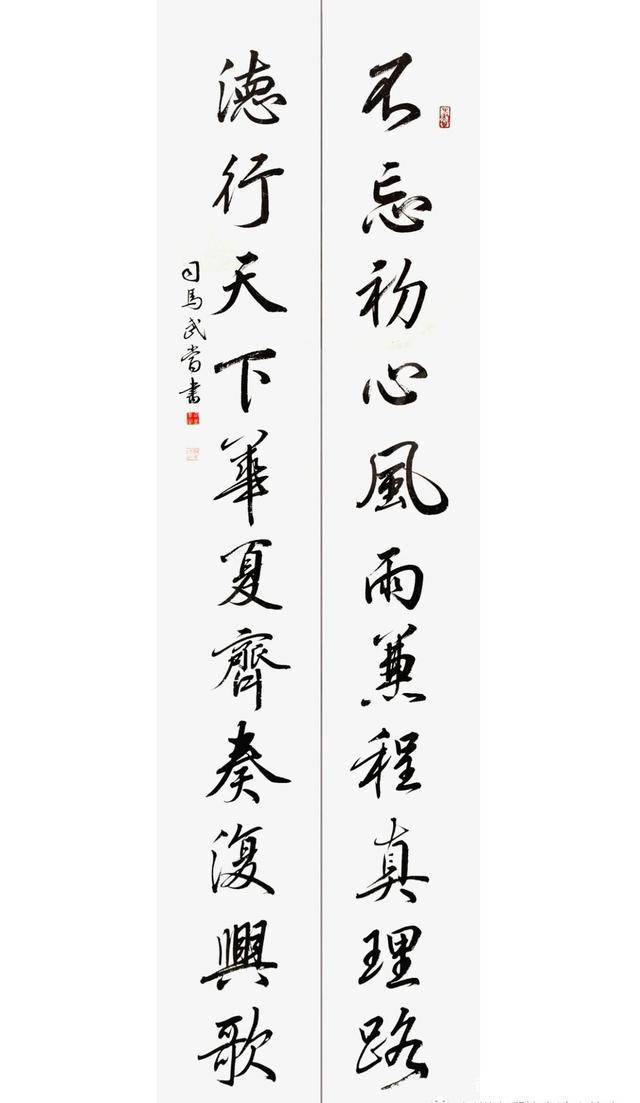 不忘初心風雨兼程真理路
德行天下華夏齊奏復興歌
司馬武當書